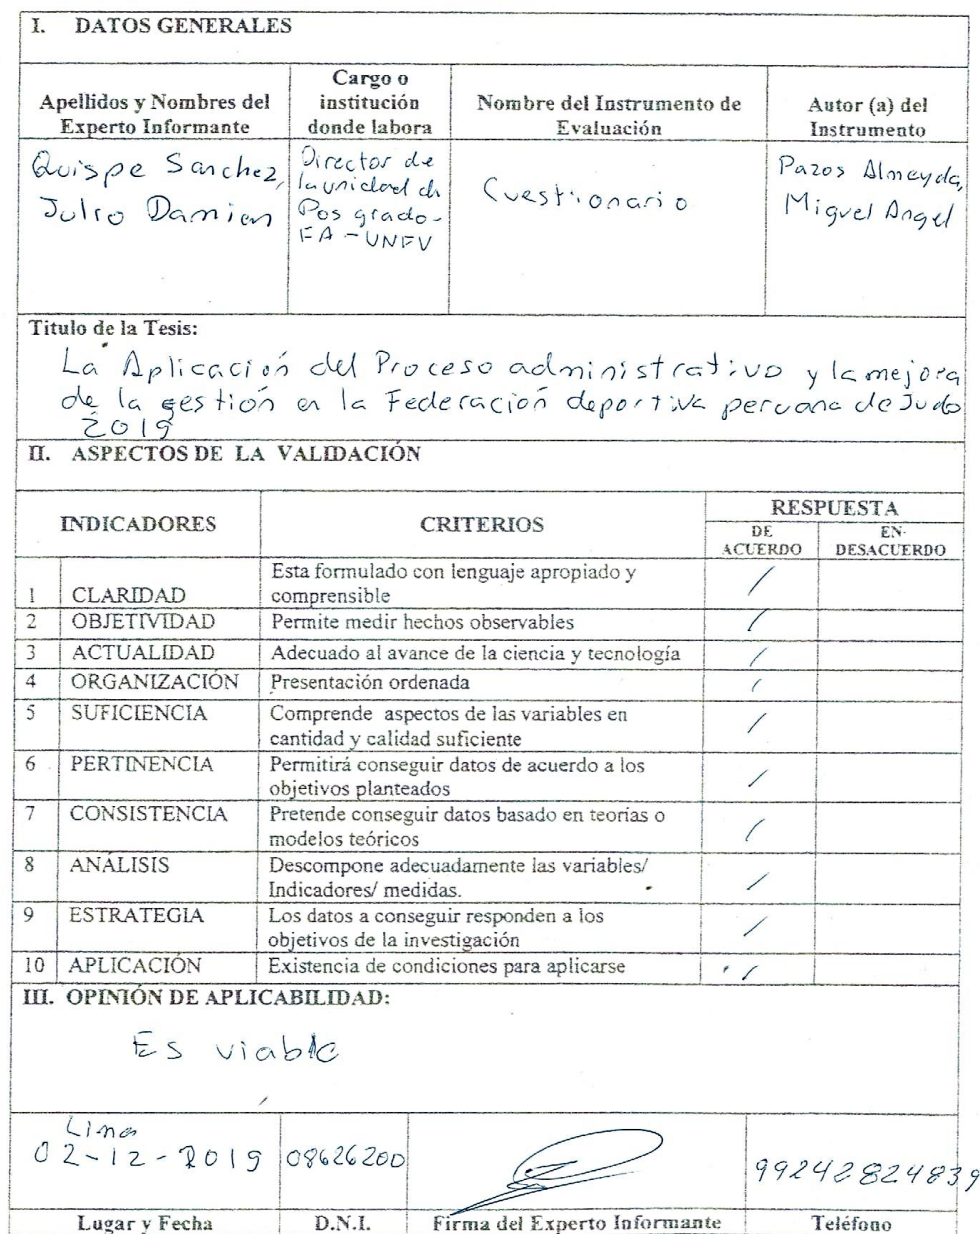 I. DATOS GENERALES
Apellidos y Nombres del
Experto Informante
Cargo o
institución
donde labora
Nombre del Instrumento de
Evaluación
Autor (a) del
Instrumento
Quispe Sanchez,
Julio Damian
Director de
la unidad de
Pos grado-
FA - UNFV
Cuestionario
Pazos Almeyda,
Miguel Angel
Titulo de la Tesis:
La Aplicación del Proceso administrativo y la mejora
de la gestión en la Federación deportiva peruana de Judo
2019
II. ASPECTOS DE LA VALIDACIÓN
INDICADORES
CRITERIOS
RESPUESTA
DE
ACUERDO
EN-
DESACUERDO
1 CLARIDAD Esta formulado con lenguaje apropiado y
comprensible /
2 OBJETIVIDAD Permite medir hechos observables /
3 ACTUALIDAD Adecuado al avance de la ciencia y tecnología /
4 ORGANIZACIÓN Presentación ordenada /
5 SUFICIENCIA Comprende aspectos de las variables en
cantidad y calidad suficiente /
6 PERTINENCIA Permitirá conseguir datos de acuerdo a los
objetivos planteados /
7 CONSISTENCIA Pretende conseguir datos basado en teorías o
modelos teóricos /
8 ANÁLISIS Descompone adecuadamente las variables/
Indicadores/ medidas. /
9 ESTRATEGIA Los datos a conseguir responden a los
objetivos de la investigación /
10 APLICACIÓN Existencia de condiciones para aplicarse /
III. OPINIÓN DE APLICABILIDAD:
Es viable
Lima
02-12-2019
08626200
99242824839
Lugar y Fecha
D.N.I.
Firma del Experto Informante
Teléfono